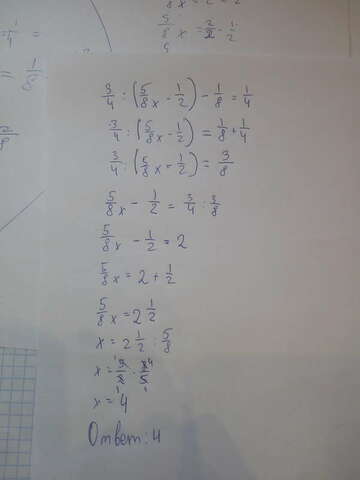 5/8 x = 2/2 · 1/2
1/4 =
= 1/8
3/4 : (5/8 x - 1/2) - 1/8 = 1/4
3/4 : (5/8 x - 1/2) = 1/8 + 1/4
3/4 : (5/8 x - 1/2) = 3/8
5/8 x - 1/2 = 3/4 : 3/8
5/8 x - 1/2 = 2
5/8 x = 2 + 1/2
5/8 x = 2 1/2
x = 2 1/2 : 5/8
x = 5/2 · 8/5
x = 4
Ответ: 4